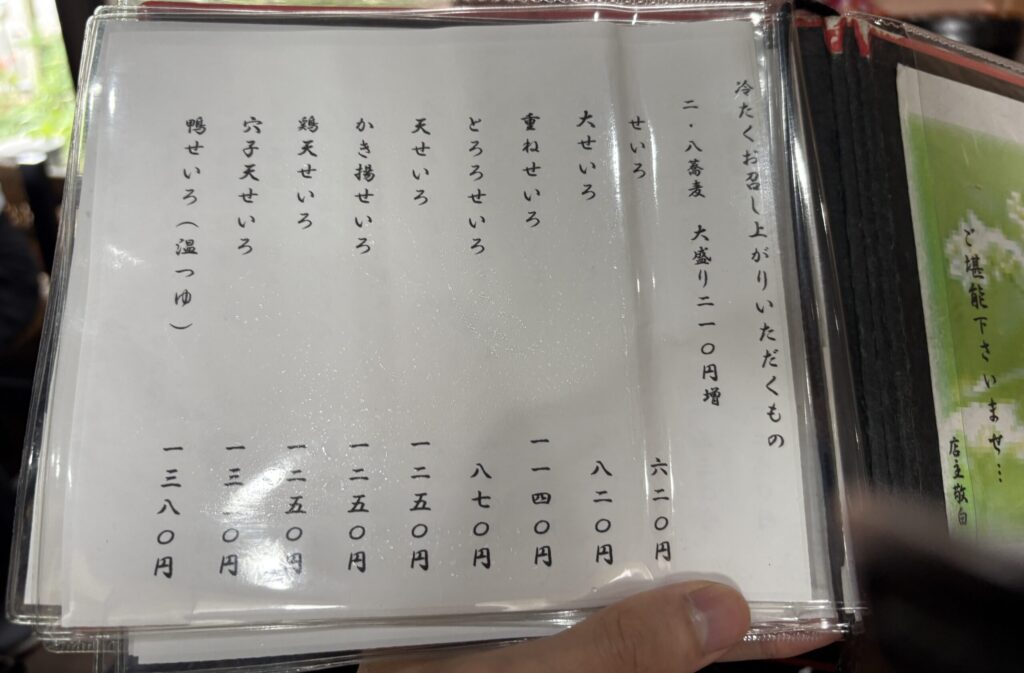 冷たくお召し上がりいただくもの
二・八蕎麦 大盛り二一〇円増
せいろ 六二〇円
大せいろ 八二〇円
重ねせいろ 一一四〇円
とろろせいろ 八七〇円
天せいろ 一二五〇円
かき揚せいろ 一二五〇円
鶏天せいろ 一二五〇円
穴子天せいろ 一三 〇円
鴨せいろ（温つゆ） 一三八〇円
ご堪能下さいませ…
店主敬白